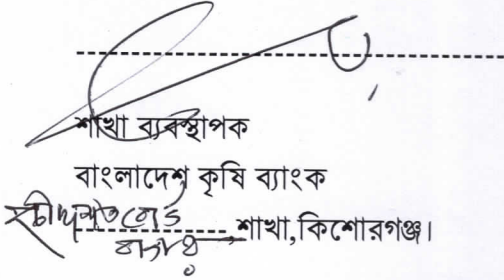 শাখা ব্যবস্থাপক
বাংলাদেশ কৃষি ব্যাংক
শাখা,কিশোরগঞ্জ।